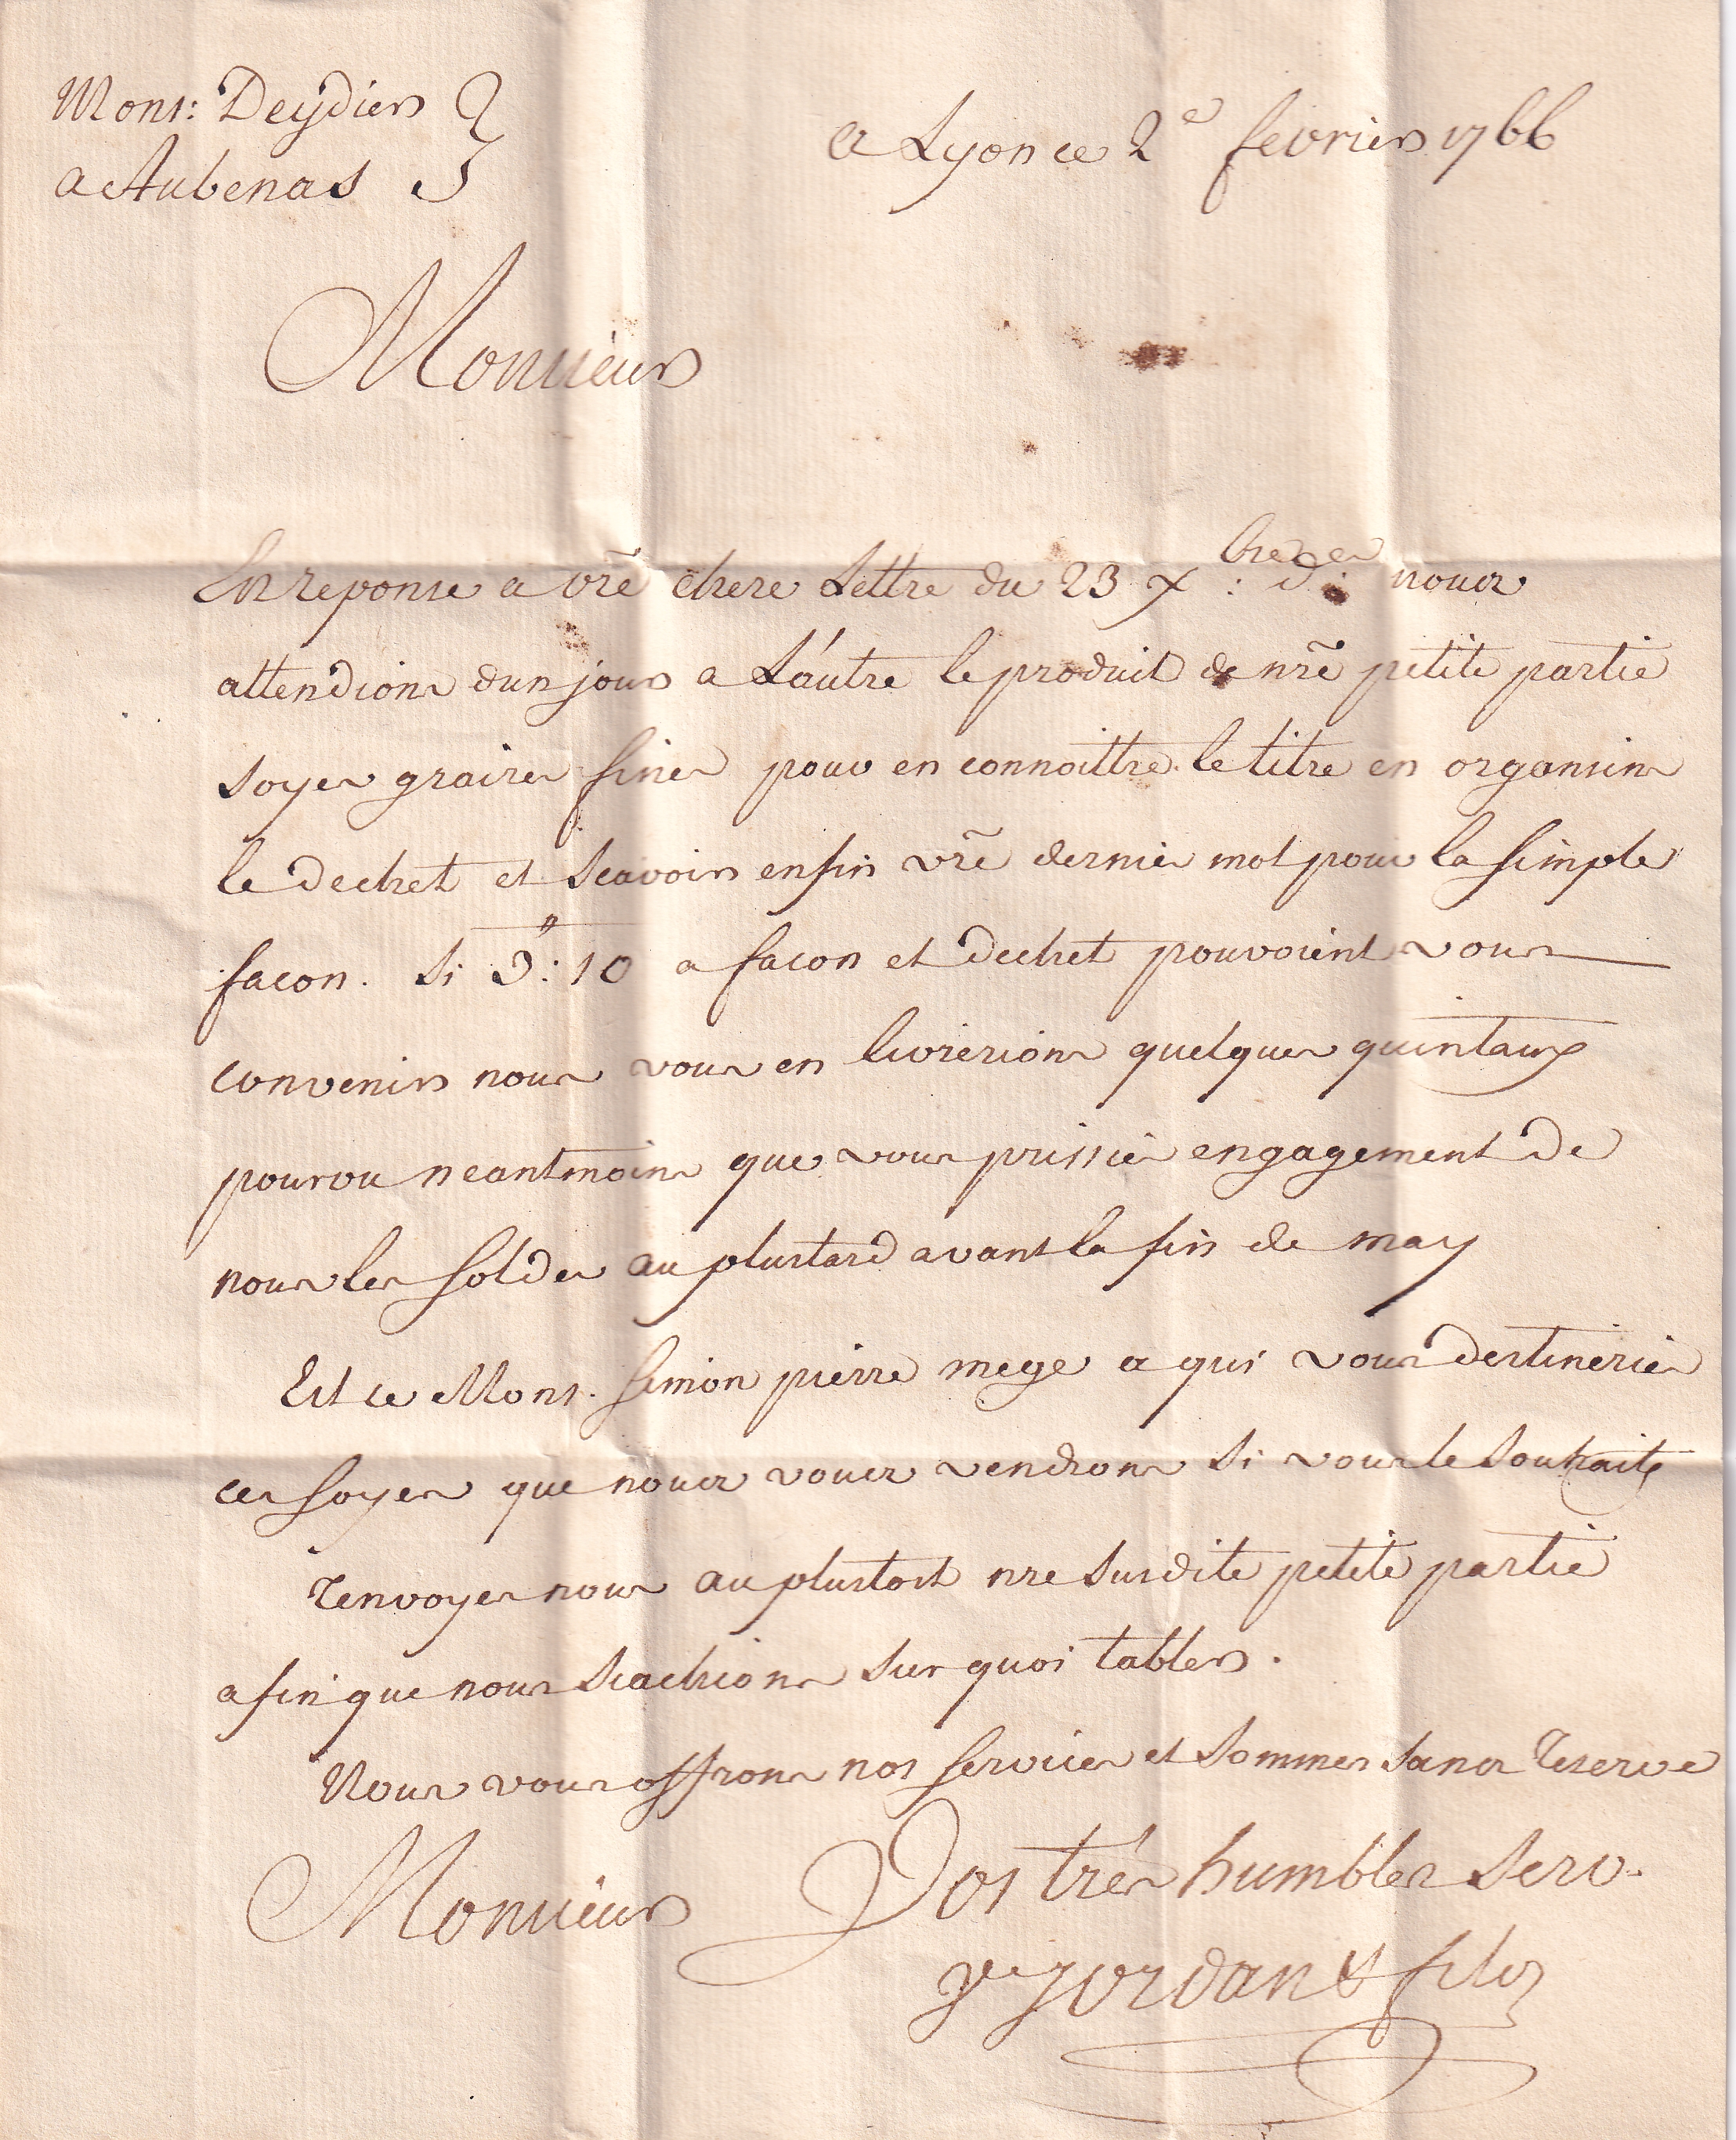 Mons: Deydier
a Aubenas
a Lyon ce 2e fevrier 1766
Monsieur
En reponse a vre chere Lettre du 23 xbre der nous
attendions dun jour a L'autre le produit de nre petite partie
soyes graizes fines pour en connoittre le titre en organsins
le dechet et scavoir enfin vre dernier mot pour la simple
facon. Si 3": 10 a facon et dechet pouvoient vous
convenir nous vous en livrerions quelques quintaux
pourvu neantmoins que vous prissiés engagement de
nous les solder au plustard avant la fin de may
Est ce Mons. Simon pierre mege a qui vous destineriés
ces soyes que nous vous vendrons si vous le souhaités
Renvoyes nous au plustost nre susdite petite partie
afin que nous scachions sur quoi tabler.
Nous vous offrons nos services et sommes sans Reserve
Monsieur Vos très humbles serv.
ve jordan & fils